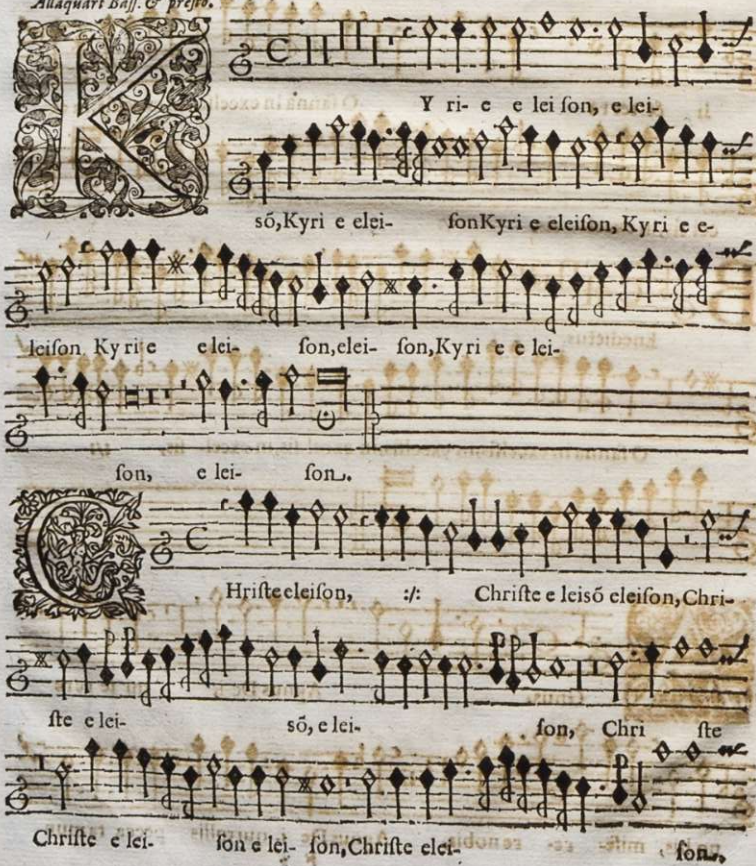 Allaquart Bass. & presto.
K
Y ri- e e lei ſon, e lei-
ſõ, Kyri e elei- ſonKyri e eleiſon, Ky ri e e-
leiſon Ky ri e e lei- ſon, elei- ſon, Ky ri e e lei-
ſon, e lei- ſon.
C
Hriſte eleiſon, :/: Chriſte e leisõ eleiſon, Chri-
ſte e lei- sõ, e lei- ſon, Chri ſte
Chriſte e lei- ſon e lei- ſon, Chriſte elei- ſon.